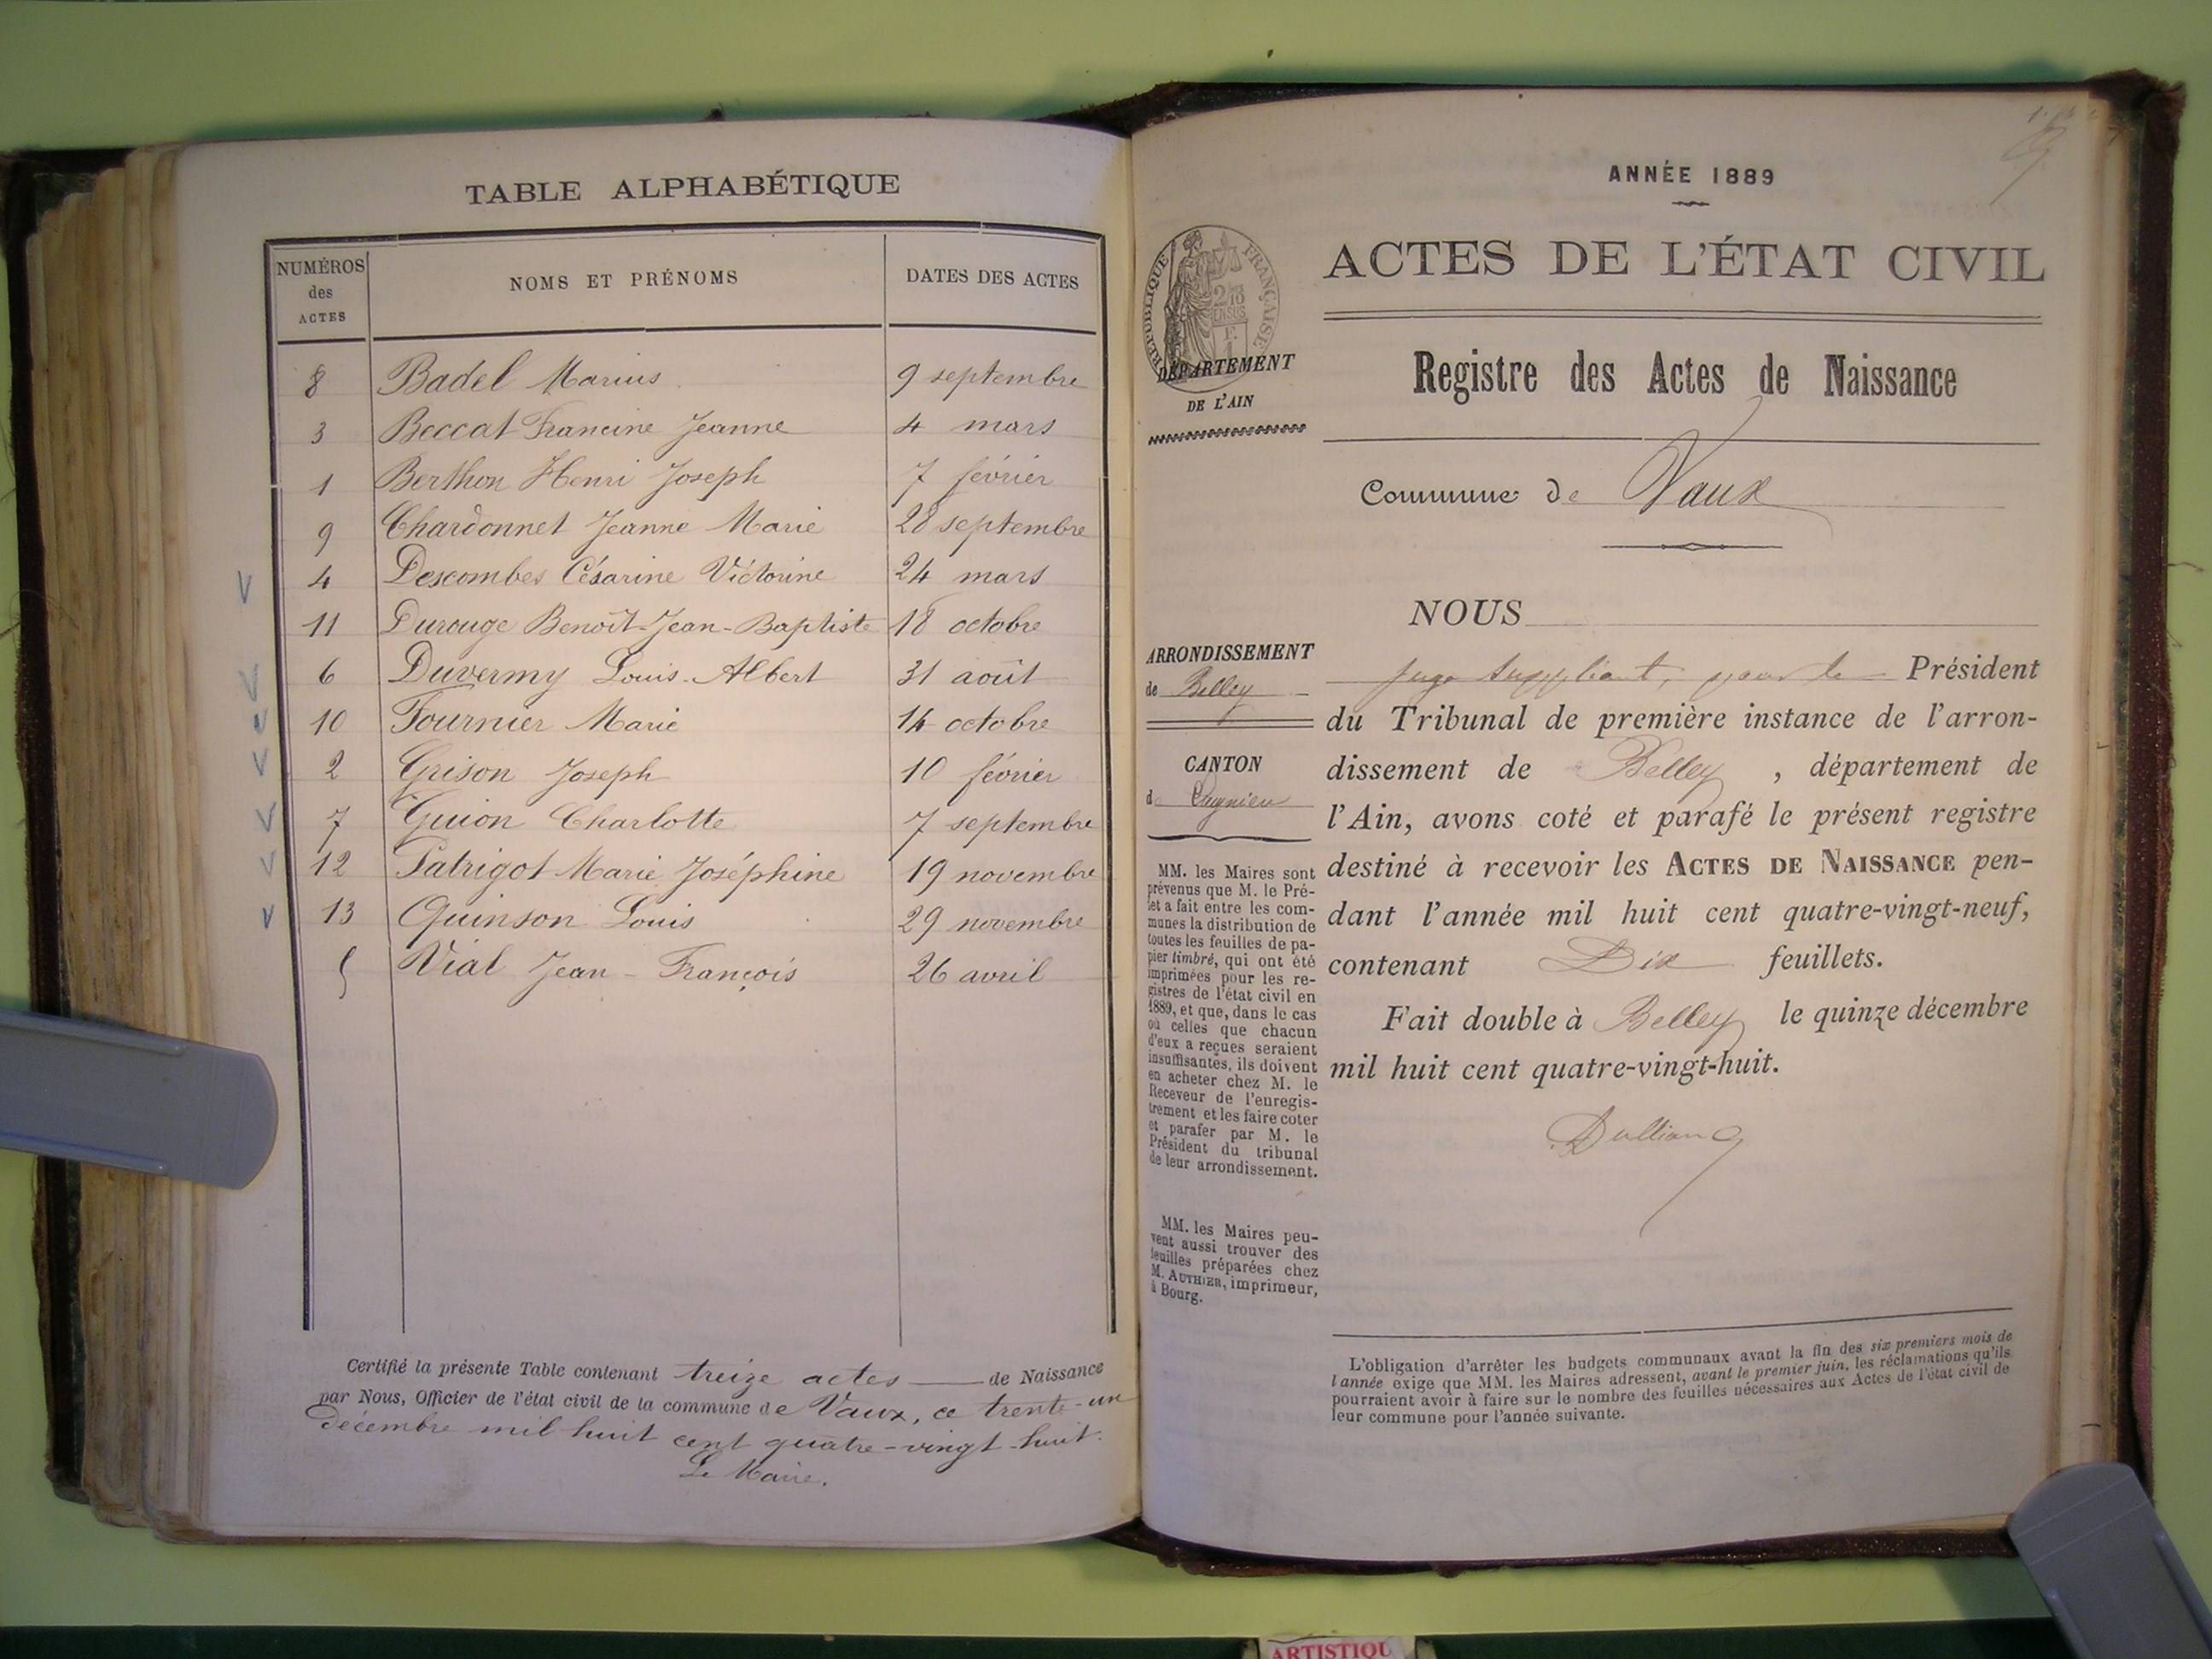 TABLE ALPHABÉTIQUE
NUMÉROS des ACTES NOMS ET PRÉNOMS DATES DES ACTES
8 Badel Marius 9 septembre
3 Beccat Francine Jeanne 4 mars
1 Berthon Henri Joseph 7 février
9 Chardonnet Jeanne Marie 28 septembre
4 Descombes Césarine Victorine 24 mars
11 Durouge Benoît-Jean-Baptiste 18 octobre
6 Duvermy Louis-Albert 31 août
10 Fournier Marie 14 octobre
2 Grison Joseph 10 février
7 Guion Charlotte 7 septembre
12 Patrigot Marie Joséphine 19 novembre
13 Quinson Louis 29 novembre
5 Vial Jean-François 26 avril
Certifié la présente Table contenant treize actes de Naissance
par Nous, Officier de l'état civil de la commune de Vaux, ce trente-un
décembre mil huit cent quatre-vingt-huit.
Le Maire.
ANNÉE 1889
ACTES DE L'ÉTAT CIVIL
RÉPUBLIQUE FRANÇAISE
DÉPARTEMENT
DE L'AIN
Registre des Actes de Naissance
Commune de Vaux
ARRONDISSEMENT
de Belley
CANTON
de Lagnieu
MM. les Maires sont
prévenus que M. le Pré-
fet a fait entre les com-
munes la distribution de
toutes les feuilles de pa-
pier timbré, qui ont été
imprimées pour les re-
gistres de l'état civil en
1889, et que, dans le cas
où celles que chacun
d'eux a reçues seraient
insuffisantes, ils doivent
en acheter chez M. le
Receveur de l'enregis-
trement et les faire coter
et parafer par M. le
Président du tribunal
de leur arrondissement.
MM. les Maires peu-
vent aussi trouver des
feuilles préparées chez
M. AUTHIER, imprimeur,
à Bourg.
NOUS
juge suppléant, pour le Président
du Tribunal de première instance de l'arron-
dissement de Belley, département de
l'Ain, avons coté et parafé le présent registre
destiné à recevoir les ACTES DE NAISSANCE pen-
dant l'année mil huit cent quatre-vingt-neuf,
contenant Dix feuillets.
Fait double à Belley le quinze décembre
mil huit cent quatre-vingt-huit.
L'obligation d'arrêter les budgets communaux avant la fin des six premiers mois de
l'année exige que MM. les Maires adressent, avant le premier juin, les réclamations qu'ils
pourraient avoir à faire sur le nombre des feuilles nécessaires aux Actes de l'état civil de
leur commune pour l'année suivante.
ARTISTIQU